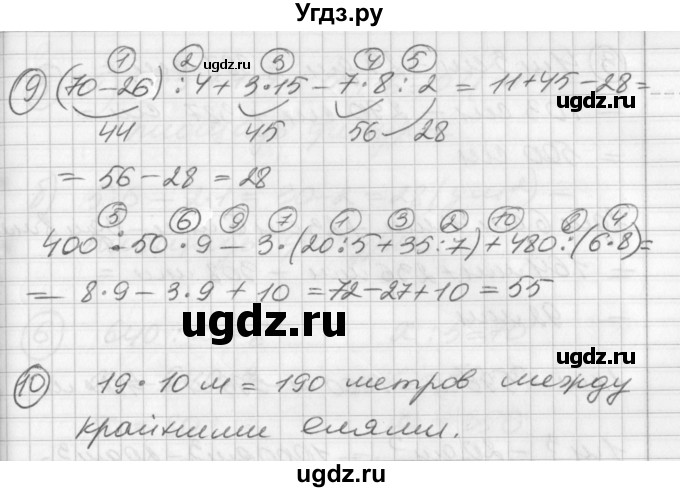 Угдз.ру
① ② ugdz.ru ③ ④ ⑤
⑨ (70-26) : 4 + 3·15 - 7·8 : 2 = 11+45-28=
ugdz.ru
44 45 56 28
= 56-28 = 28
⑤ ⑥ ⑨ ⑦ ① ③ ② ⑩ ⑧ ④
400 : 50 · 9 - 3·(20:5+35:7)+480:(6·8)=
= 8·9-3·9+10 =72-27+10 =55
ugdz.ru
ugdz.ru
⑩ 19·10 м = 190 метров между
крайними елями.
ugdz.ru
ugdz.ru